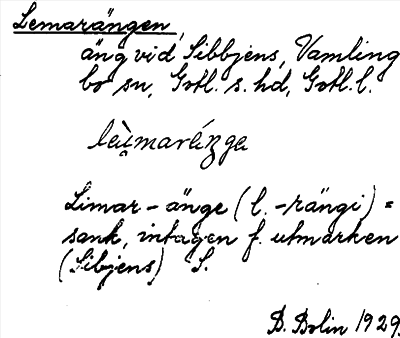 Lemarängen,
äng vid Sibbjens, Vamling
bo sn, Gotl. s. hd, Gotl. l.
Limar-änge (l. -rängi) =
sank, intagen f. utmarken
(Sibjens) S.
B. Bolin 1929.